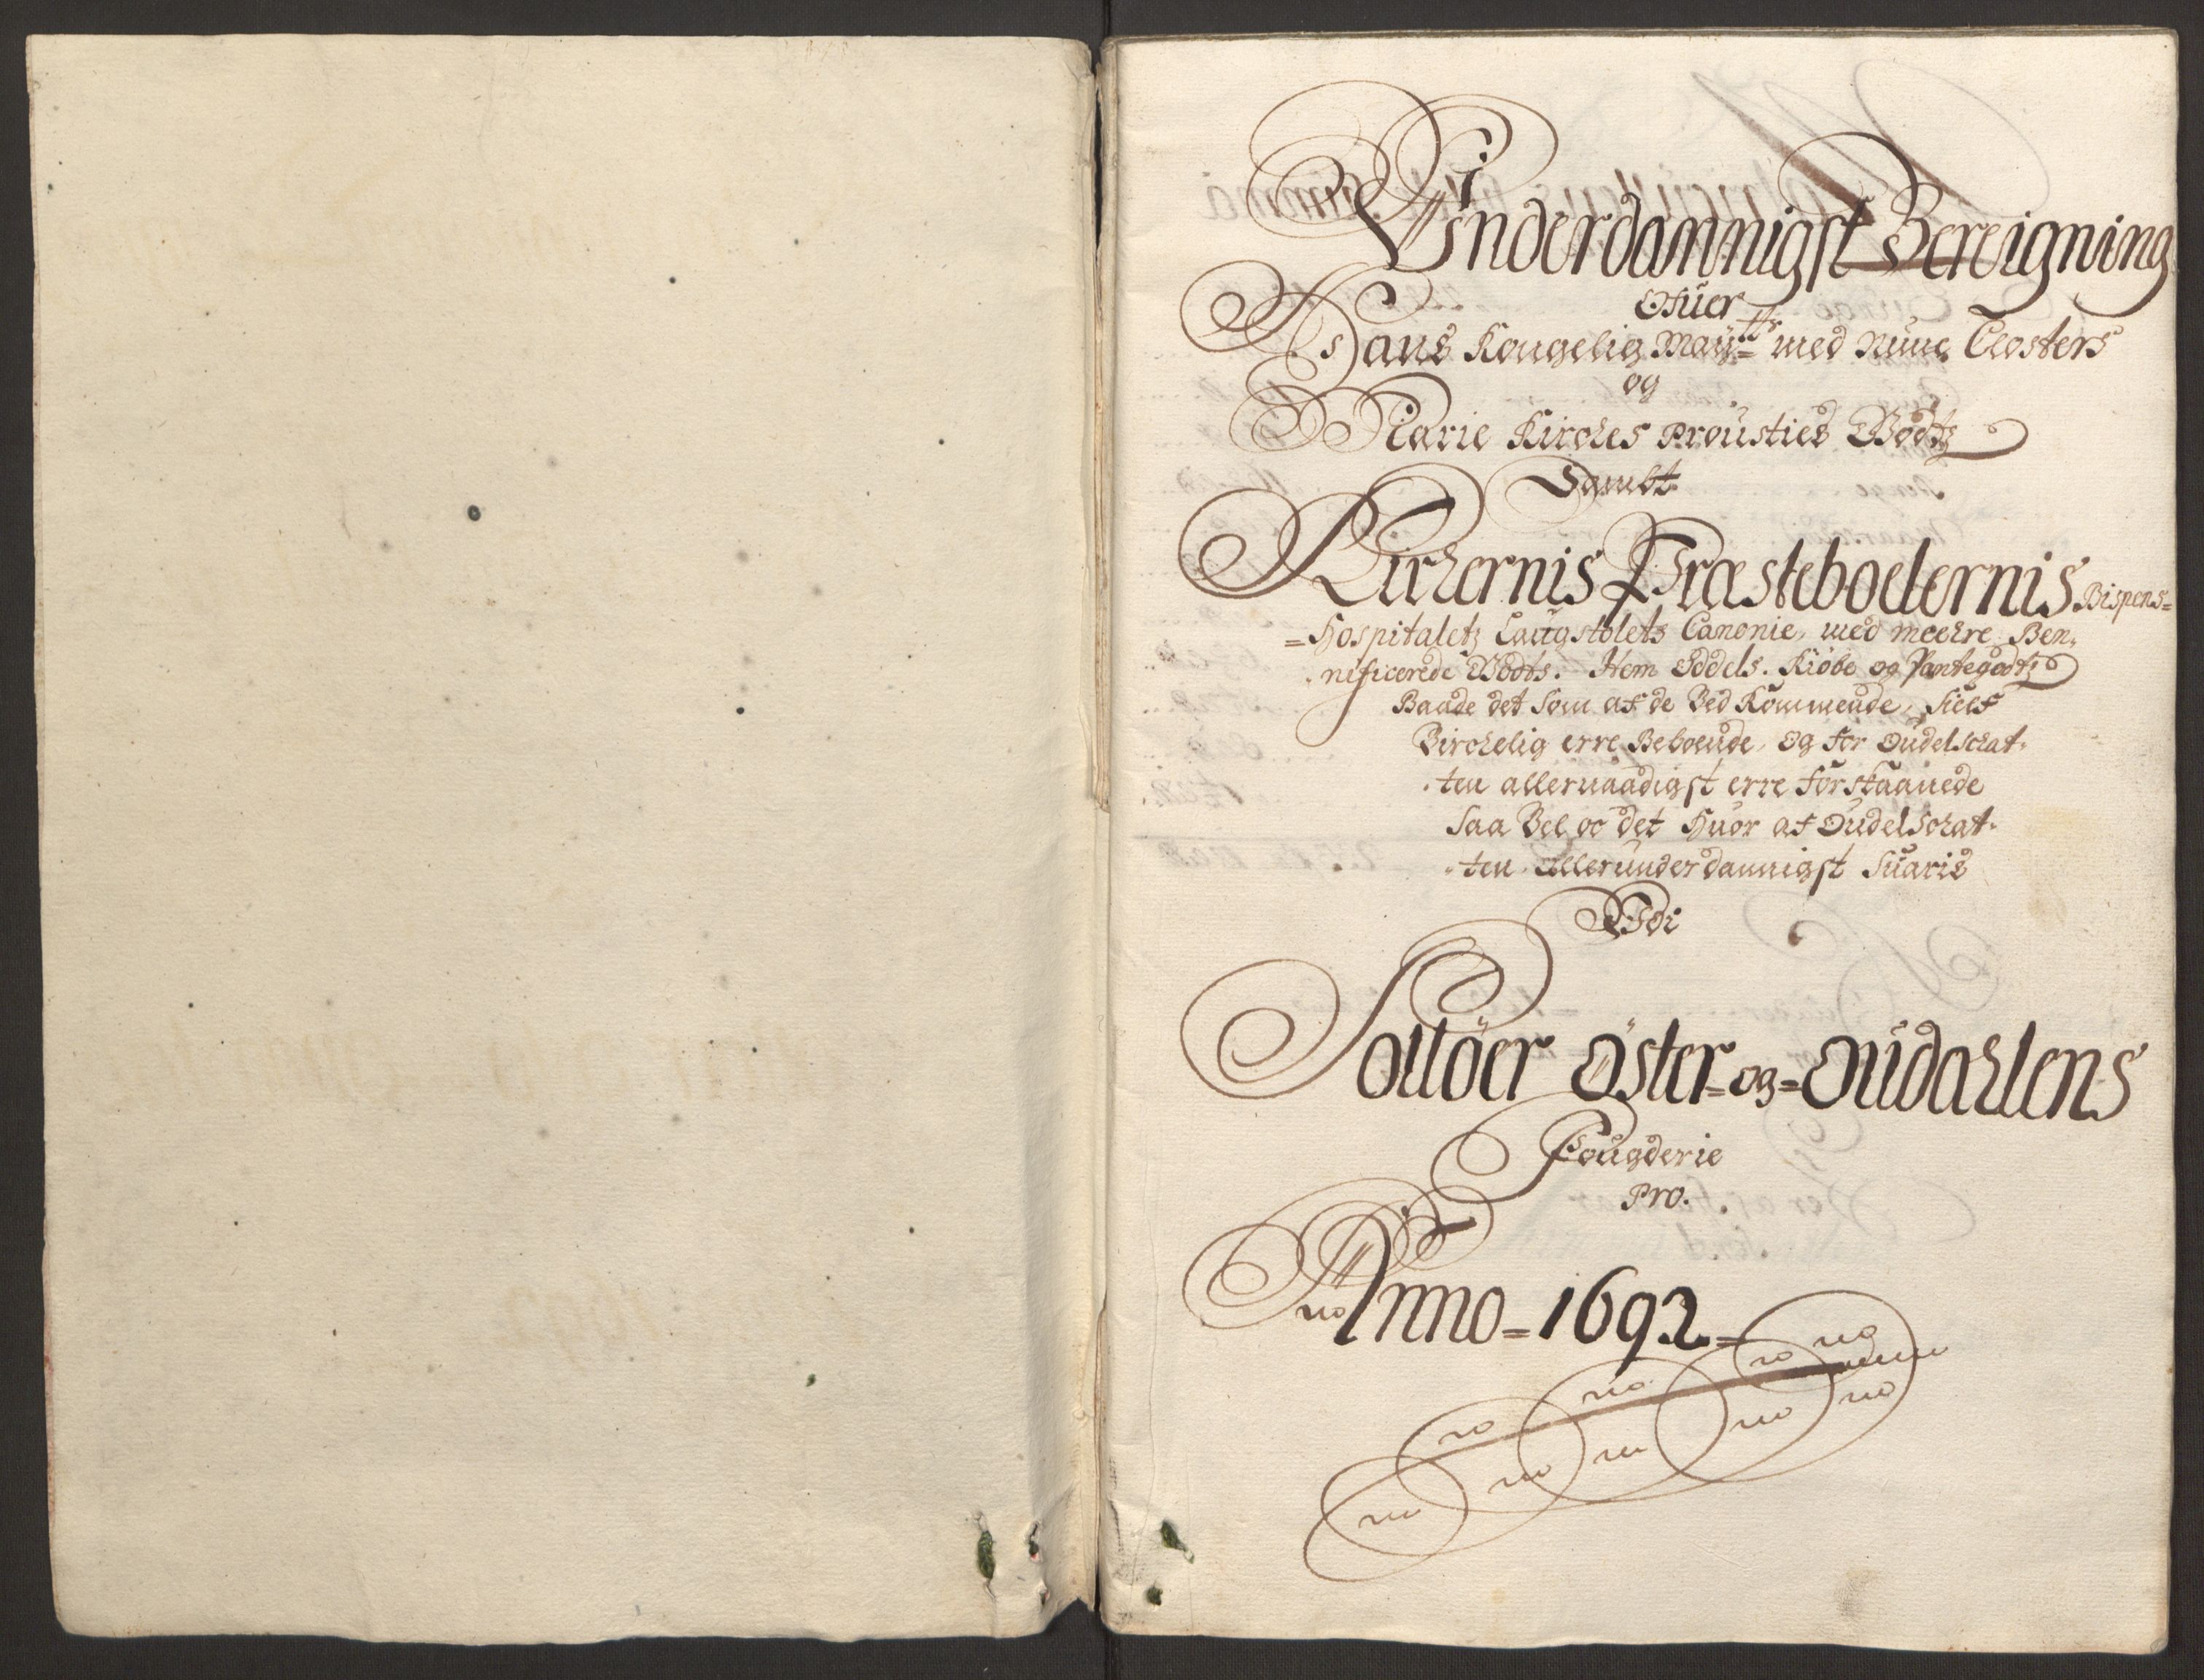 Underdannigst Bereigning
Ofuer
Hans Kongelig May:tts med Nune Closters
og
Marie Kirches Prousties Godtz
Sambt
Kirchernis Præsteboelernis Bispens=
=Hospitaletz Laugstolets Canonie, med meehre Ben,
nificerede Godts. Item Oddels. Kiøbe og Pantegodtz
Baade det Som af de Ved Kommende, Sielf
Virchelig erre Beboende, og for Oudelschat,
ten allernaadigst erre forskaanede
Saa Vel oc det Huor af Oudelschat,
ten allerunderdannigst Suaris
Udi
Solløer Øster=og=Oudahlens
Fougderie
Pro.
Anno=1692=